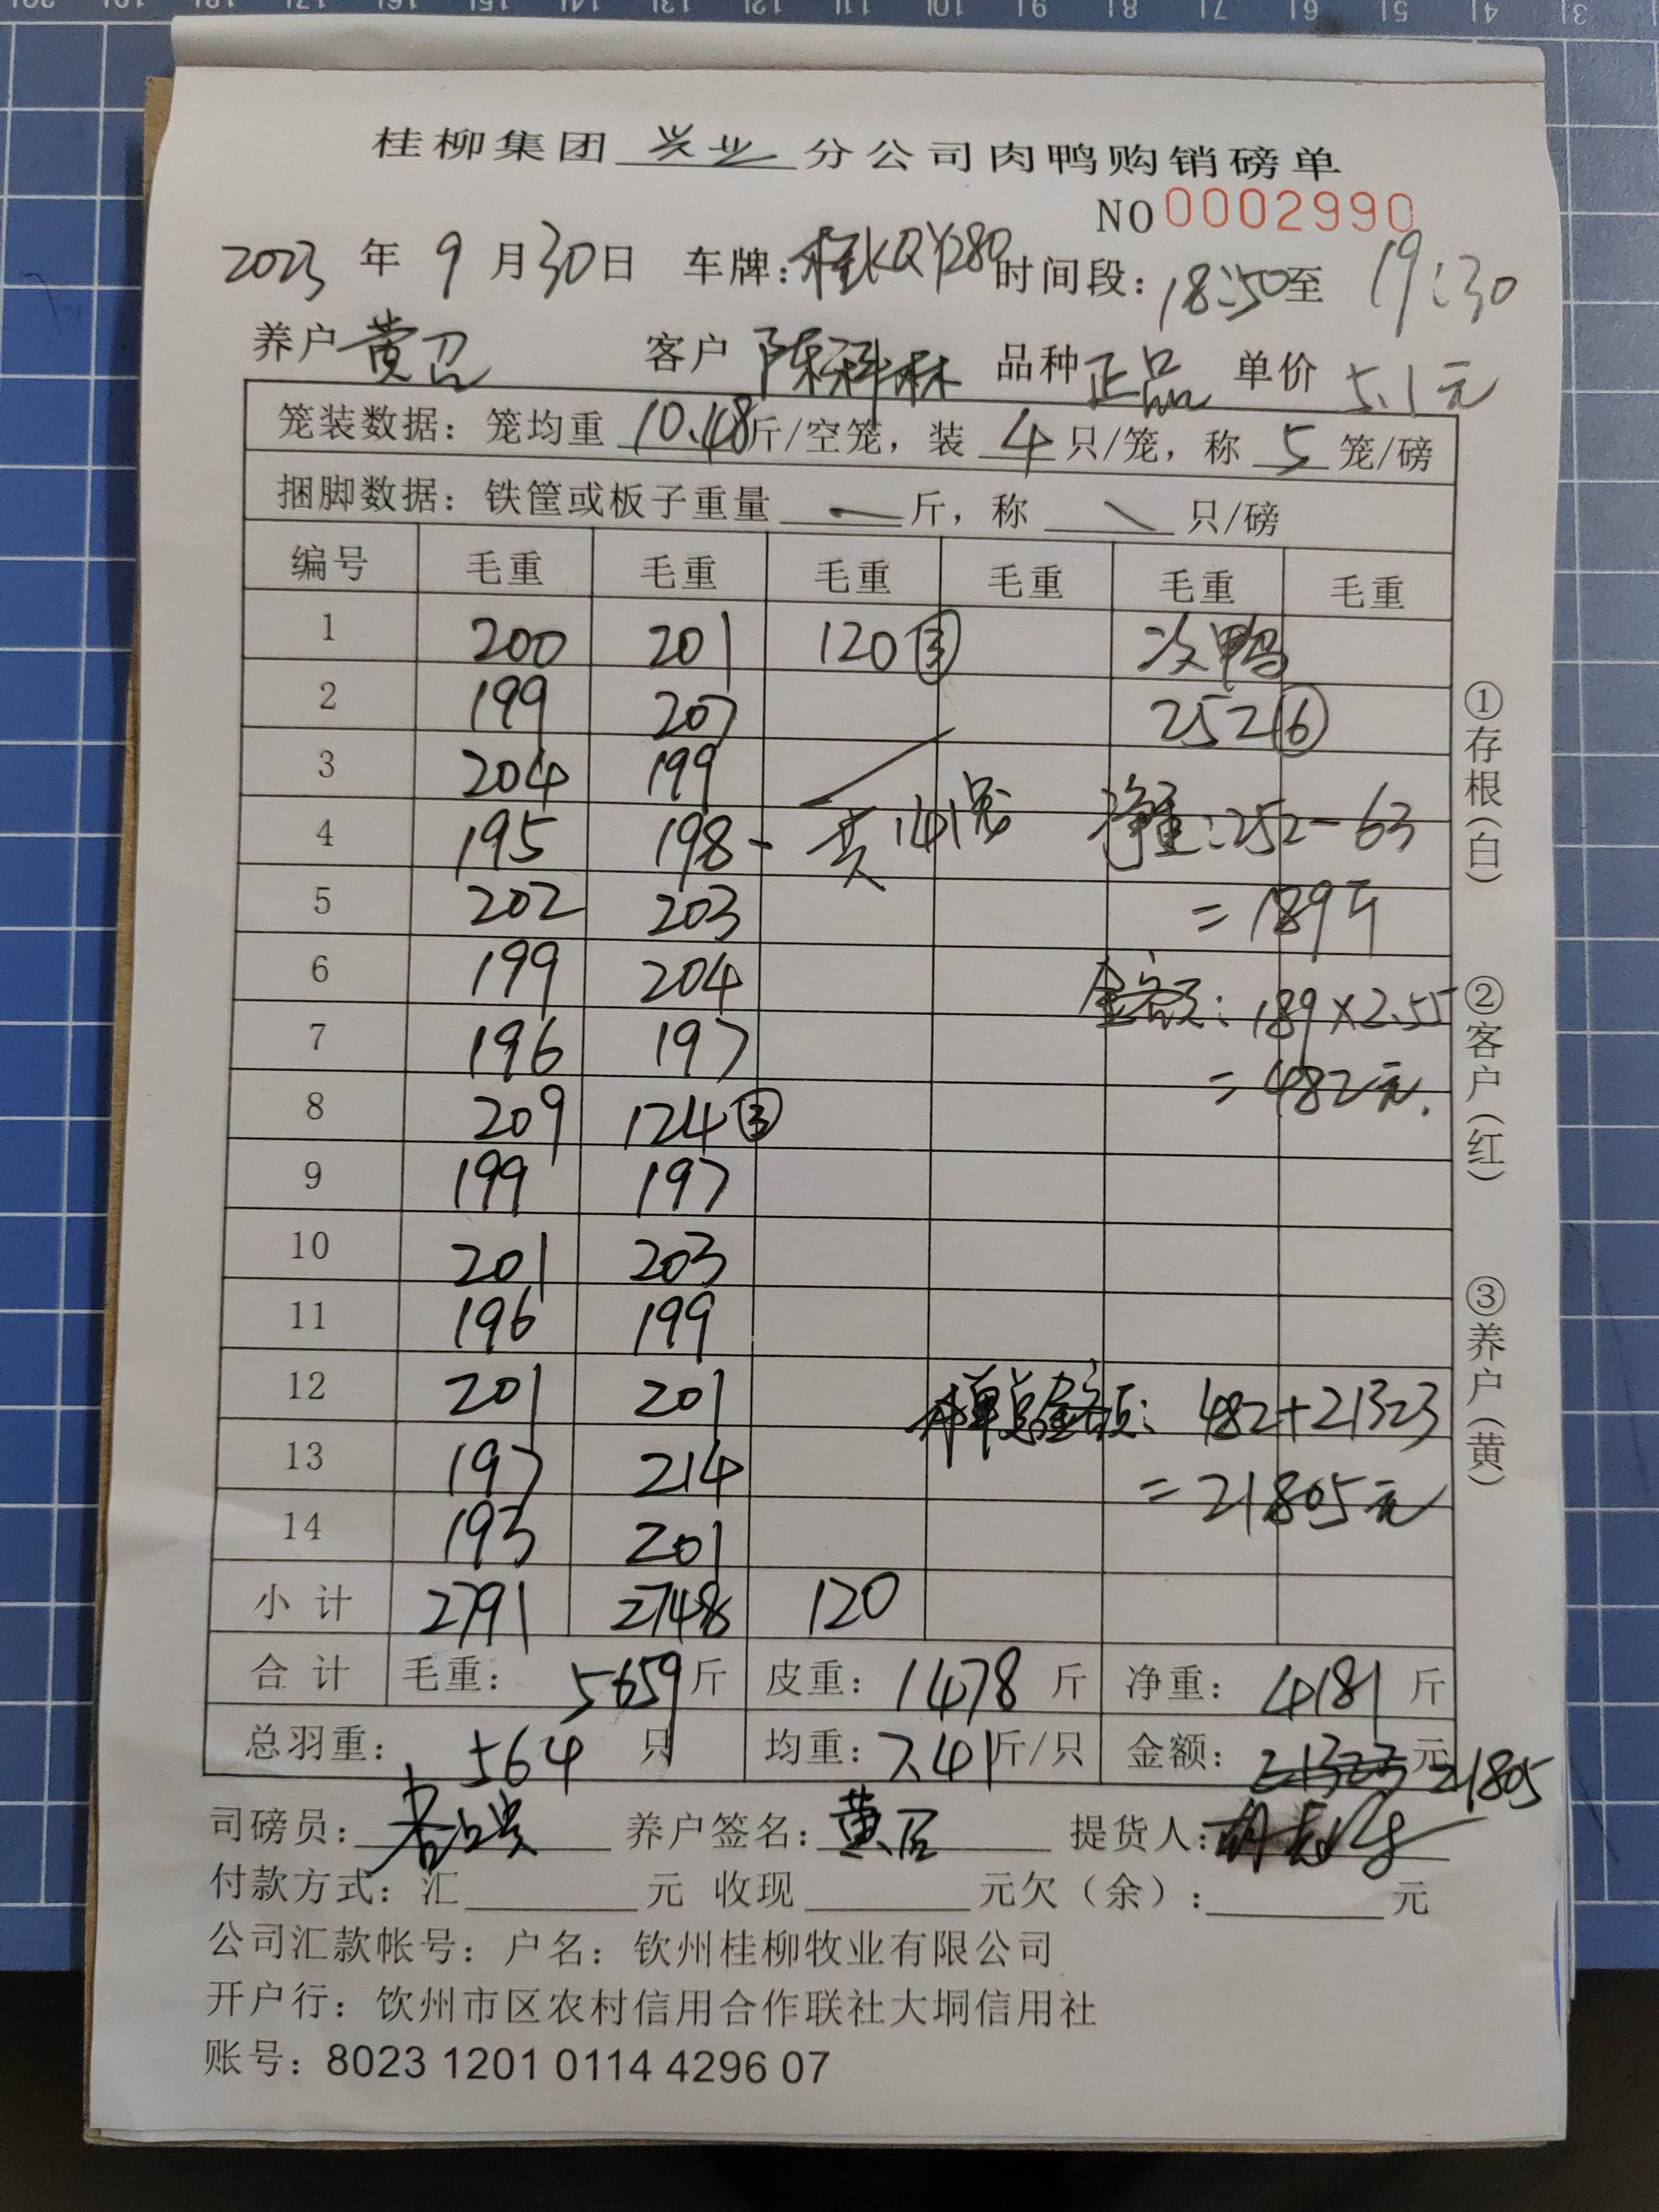 桂柳集团 兴业 分公司肉鸭购销磅单
NO 0002990
2023 年 9 月 30 日 车牌：桂KQY280 时间段：18:50 至 19:30
养户 黄召 客户 陈科林 品种 正品 单价 5.1元
笼装数据：笼均重 10.48 斤/空笼，装 4 只/笼，称 5 笼/磅
捆脚数据：铁筐或板子重量 — 斤，称 \ 只/磅
编号 毛重 毛重 毛重 毛重 毛重 毛重
1 200 201 120③ 次鸭
2 199 207 252⑥
3 204 199
4 195 198 - 共141笼 净重：252-63
5 202 203 =189斤
6 199 204 金额：189×2.55
7 196 197 =482元.
8 209 124③
9 199 197
10 201 203
11 196 199
12 201 201 总金额：482+21323
13 197 214 =21805元
14 193 201
小计 2791 2748 120
合计 毛重：5659斤 皮重：1478 斤 净重：4181 斤
总羽重：564 只 均重：7.41斤/只 金额：21323 元 21805
司磅员： 养户签名：黄召 提货人：
付款方式：汇 元 收现 元欠（余）： 元
公司汇款帐号：户名：钦州桂柳牧业有限公司
开户行：钦州市区农村信用合作联社大垌信用社
账号：8023 1201 0114 4296 07
①存根（白）
②客户（红）
③养户（黄）